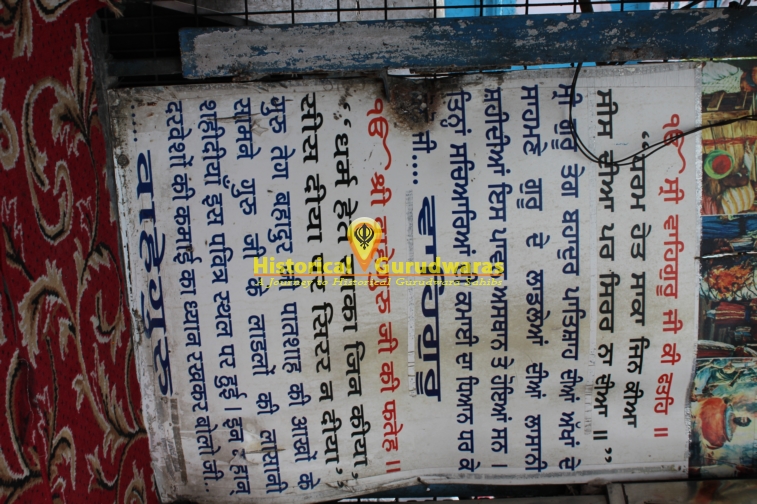 ੴ ਸ਼੍ਰੀ ਵਾਹਿਗੁਰੂ ਜੀ ਕੀ ਫਤਹਿ ॥
“ਧਰਮ ਹੇਤ ਸਾਕਾ ਜਿਨਿ ਕੀਆ
ਸੀਸ ਦੀਆ ਪਰ ਸਿਰਰ ਨਾ ਦੀਆ ॥”
ਸ਼੍ਰੀ ਗੁਰੂ ਤੇਗ ਬਹਾਦੁਰ ਪਾਤਿਸ਼ਾਹ ਦੀਆਂ ਅੱਖਾਂ ਦੇ
ਸਾਹਮਣੇ ਗੁਰੂ ਦੇ ਲਾਡਲਿਆਂ ਦੀਆਂ ਲਾਸਾਨੀ
ਸ਼ਹੀਦੀਆਂ ਇਸ ਪਾਵਨ ਅਸਥਾਨ ਤੇ ਹੋਈਆਂ ਸਨ ।
ਤਿਨ੍ਹਾਂ ਸਚਿਆਰਿਆਂ ਦੀ ਕਮਾਈ ਦਾ ਧਿਆਨ ਧਰ ਕੇ
ਜੀ.... ਵਾਹਿਗੁਰੂ
ੴ श्री वाहेगुरु जी की फतेह ॥
“धर्म हेत साका जिन कीया
सीस दीया पर सिरर न दीया”
गुरु तेग बहादुर जी पातशाह की आखों के
सामने गुरु जी के लाडलों की लासानी
शहीदीयां इस पवित्र स्थल पर हुई। इन महान
दरवेशों की कमाई का ध्यान रखकर बोलो जी...
.... वाहेगुरु
Historical Gurudwaras
A Journey to Historical Gurudwara Sahibs